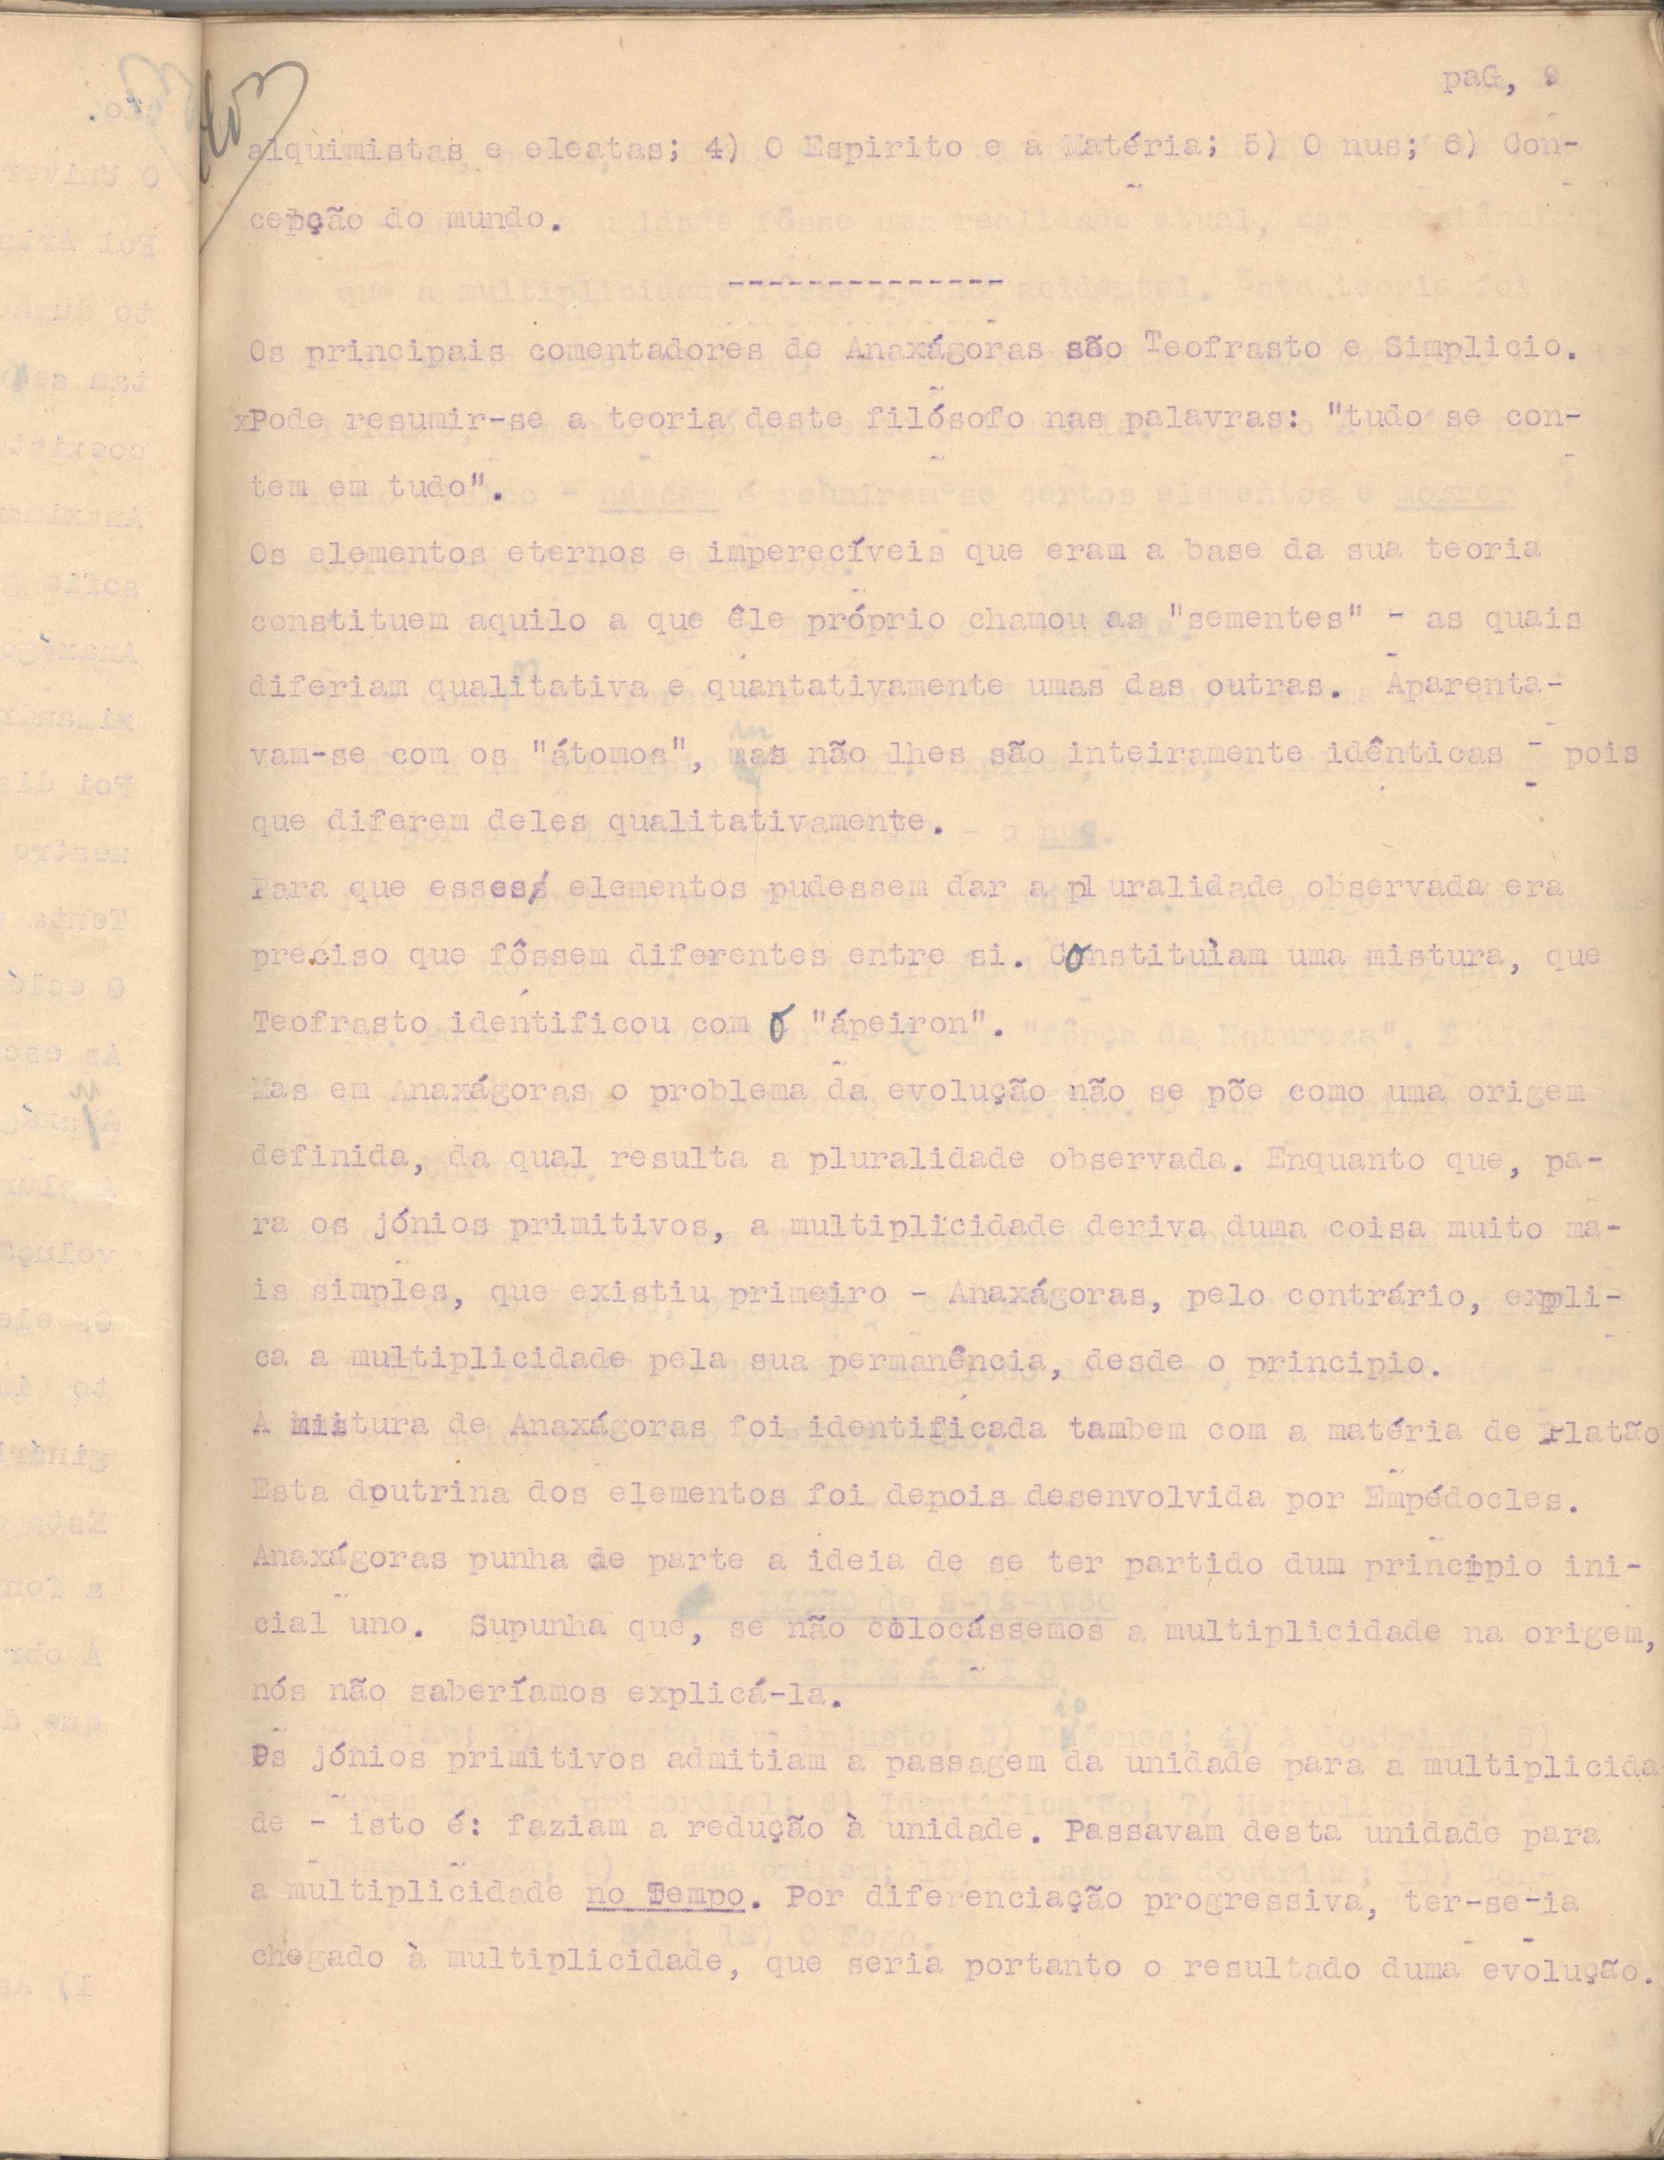 paG, 9
alquimistas e eleatas; 4) O Espirito e a Matéria; 5) O nus; 6) Con-
cepção do mundo.
--------------
Os principais comentadores de Anaxágoras são Teofrasto e Simplicio.
Pode resumir-se a teoria deste filósofo nas palavras: "tudo se con-
tem em tudo".
Os elementos eternos e imperecíveis que eram a base da sua teoria
constituem aquilo a que êle próprio chamou as "sementes" - as quais
diferiam qualitativa e quantativamente umas das outras. Aparenta-
vam-se com os "átomos", mas não lhes são inteiramente idênticas - pois
que diferem deles qualitativamente.
Para que esses elementos pudessem dar a pluralidade observada era
preciso que fôssem diferentes entre si. Constituìam uma mistura, que
Teofrasto identificou com o "ápeiron".
Mas em Anaxágoras o problema da evolução não se põe como uma origem
definida, da qual resulta a pluralidade observada. Enquanto que, pa-
ra os jónios primitivos, a multiplicidade deriva duma coisa muito ma-
is simples, que existiu primeiro - Anaxágoras, pelo contrário, expli-
ca a multiplicidade pela sua permanência, desde o principio.
A mistura de Anaxágoras foi identificada tambem com a matéria de Platão
Esta doutrina dos elementos foi depois desenvolvida por Empédocles.
Anaxágoras punha de parte a ideia de se ter partido dum principio ini-
cial uno. Supunha que, se não colocássemos a multiplicidade na origem,
nós não saberíamos explicá-la.
Os jónios primitivos admitiam a passagem da unidade para a multiplicida
de - isto é: faziam a redução à unidade. Passavam desta unidade para
a multiplicidade no Tempo. Por diferenciação progressiva, ter-se-ia
chegado à multiplicidade, que seria portanto o resultado duma evolução.